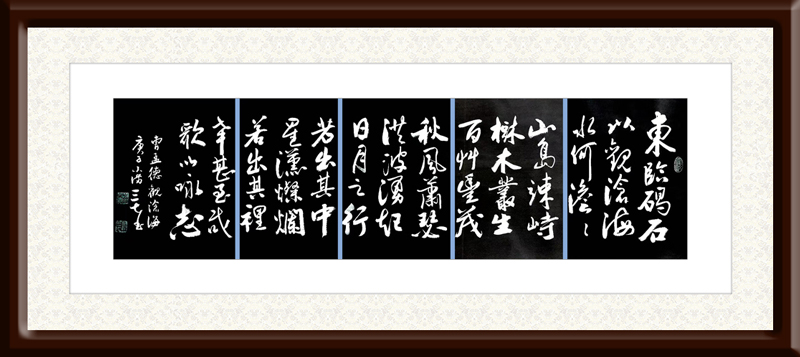 東臨碣石
以觀滄海
水何澹〻
山島竦峙
樹木叢生
百艸豐茂
秋風蕭瑟
洪波湧起
日月之行
若出其中
星漢燦爛
若出其裡
幸甚至哉
歌以咏志
曹孟德觀滄海
庚子小滿